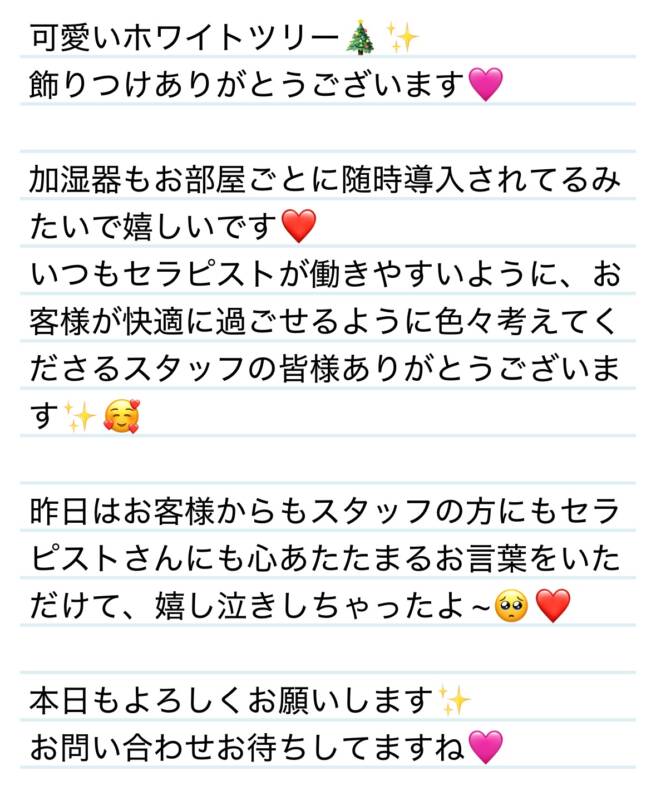 可愛いホワイトツリー🎄✨
飾りつけありがとうございます🩷
加湿器もお部屋ごとに随時導入されてるみ
たいで嬉しいです❤️
いつもセラピストが働きやすいように、お
客様が快適に過ごせるように色々考えてく
ださるスタッフの皆様ありがとうございま
す✨🥰
昨日はお客様からもスタッフの方にもセラ
ピストさんにも心あたたまるお言葉をいた
だけて、嬉し泣きしちゃったよ~🥺❤️
本日もよろしくお願いします✨
お問い合わせお待ちしてますね🩷